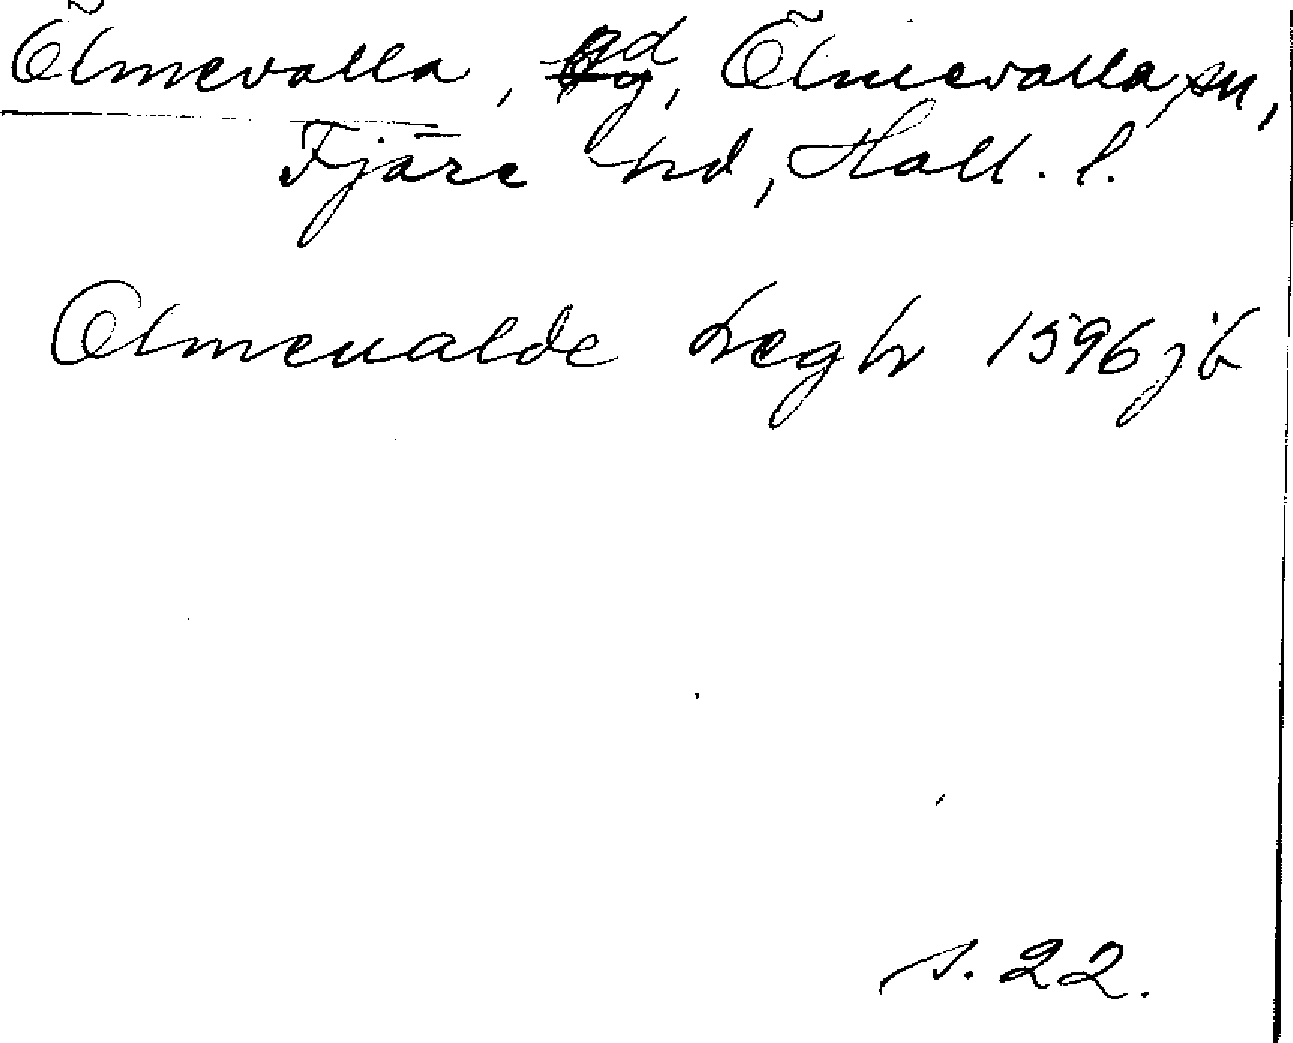 Ölmevalla, gd, Ölmevalla sn,
Fjäre hd, Hall. l.
Olmeualde 1596 jb
s. 22.